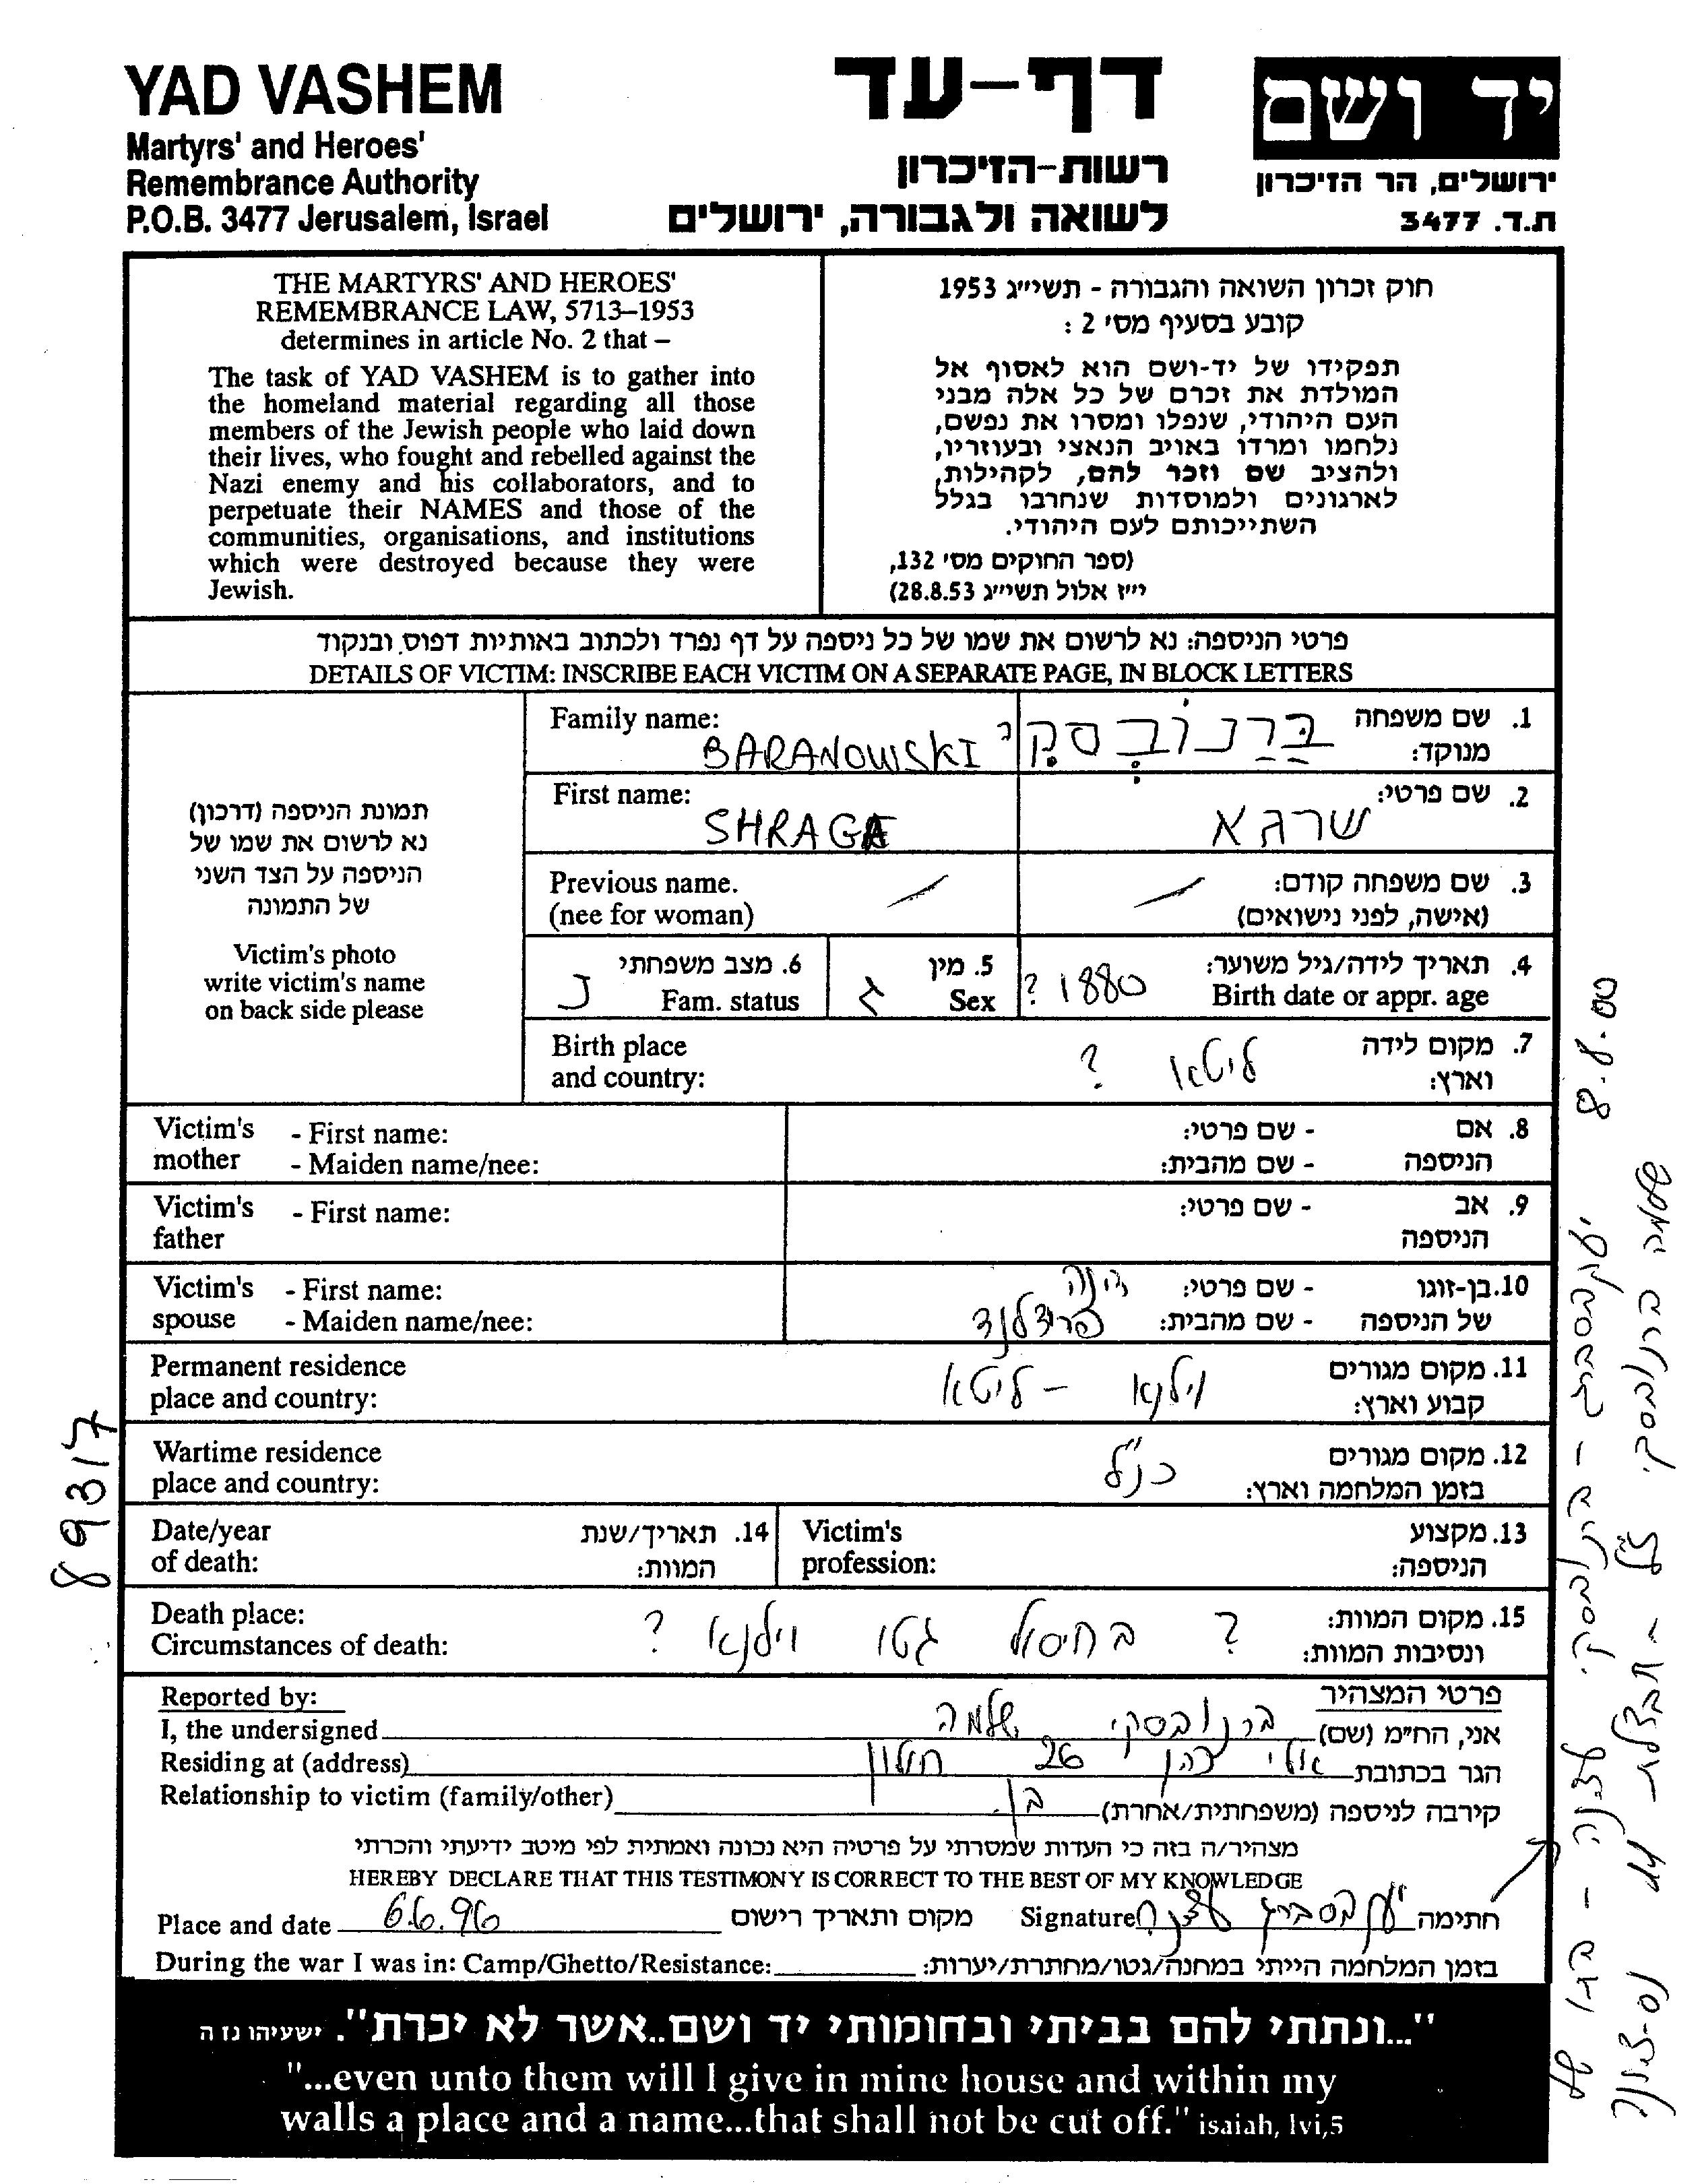 YAD VASHEM
Martyrs' and Heroes'
Remembrance Authority
P.O.B. 3477 Jerusalem, Israel
דף-עד
רשות-הזיכרון
לשואה ולגבורה, ירושלים
יד ושם
ירושלים, הר הזיכרון
ת.ד. 3477
THE MARTYRS' AND HEROES'
REMEMBRANCE LAW, 5713–1953
determines in article No. 2 that –
The task of YAD VASHEM is to gather into
the homeland material regarding all those
members of the Jewish people who laid down
their lives, who fought and rebelled against the
Nazi enemy and his collaborators, and to
perpetuate their NAMES and those of the
communities, organisations, and institutions
which were destroyed because they were
Jewish.
חוק זכרון השואה והגבורה - תשי״ג 1953
קובע בסעיף מס' 2 :
תפקידו של יד-ושם הוא לאסוף אל
המולדת את זכרם של כל אלה מבני
העם היהודי, שנפלו ומסרו את נפשם,
נלחמו ומרדו באויב הנאצי ובעוזריו,
ולהציב שם וזכר להם, לקהילות,
לארגונים ולמוסדות שנחרבו בגלל
השתייכותם לעם היהודי.
(ספר החוקים מס' 132,
י״ז אלול תשי״ג 28.8.53)
פרטי הניספה: נא לרשום את שמו של כל ניספה על דף נפרד ולכתוב באותיות דפוס ובנקוד
DETAILS OF VICTIM: INSCRIBE EACH VICTIM ON A SEPARATE PAGE, IN BLOCK LETTERS
תמונת הניספה (דרכון)
נא לרשום את שמו של
הניספה על הצד השני
של התמונה
Victim's photo
write victim's name
on back side please
Family name: BARANOWSKI
1. שם משפחה מנוקד: בַּרַנוֹבְסְקִי
First name: SHRAGA
2. שם פרטי: שרגא
Previous name.
(nee for woman)
3. שם משפחה קודם:
(אישה, לפני נישואים)
4. תאריך לידה/גיל משוער:
Birth date or appr. age 1880 ?
5. מין
Sex ז
6. מצב משפחתי
Fam. status נ
Birth place
and country:
7. מקום לידה
וארץ: ליטא ?
Victim's mother
- First name:
- Maiden name/nee:
8. אם הניספה
- שם פרטי:
- שם מהבית:
Victim's father
- First name:
9. אב הניספה
- שם פרטי:
Victim's spouse
- First name:
- Maiden name/nee:
10. בן-זוגו של הניספה
- שם פרטי:
- שם מהבית: פרידלנד
Permanent residence
place and country:
11. מקום מגורים
קבוע וארץ: וילנא - ליטא
Wartime residence
place and country:
12. מקום מגורים
בזמן המלחמה וארץ: כנ״ל
Date/year
of death:
14. תאריך/שנת
המוות:
Victim's
profession:
13. מקצוע
הניספה:
Death place:
Circumstances of death:
15. מקום המוות:
ונסיבות המוות: ? בחיסול גטו וילנא ?
Reported by:
פרטי המצהיר
I, the undersigned
אני, הח״מ (שם) ברנובסקי שלמה
Residing at (address)
הגר בכתובת אלי כהן 26 חולון
Relationship to victim (family/other)
קירבה לניספה (משפחתית/אחרת) בן.
מצהיר/ה בזה כי העדות שמסרתי על פרטיה היא נכונה ואמתית לפי מיטב ידיעתי והכרתי
HEREBY DECLARE THAT THIS TESTIMONY IS CORRECT TO THE BEST OF MY KNOWLEDGE
Place and date 6.6.96 מקום ותאריך רישום
Signature יעקבסברג עדנה חתימה
During the war I was in: Camp/Ghetto/Resistance:
בזמן המלחמה הייתי במחנה/גטו/מחתרת/יערות:
"...ונתתי להם בביתי ובחומותי יד ושם..אשר לא יכרת". ישעיהו נז ה
"...even unto them will I give in mine house and within my
walls a place and a name...that shall not be cut off." isaiah, lvi,5
89317
8.8.00
יעקבסברג - ברנובסקי עדנה - בתו של
שלמה ברנובסקי ז״ל - חבצלת 44 נס-ציונה